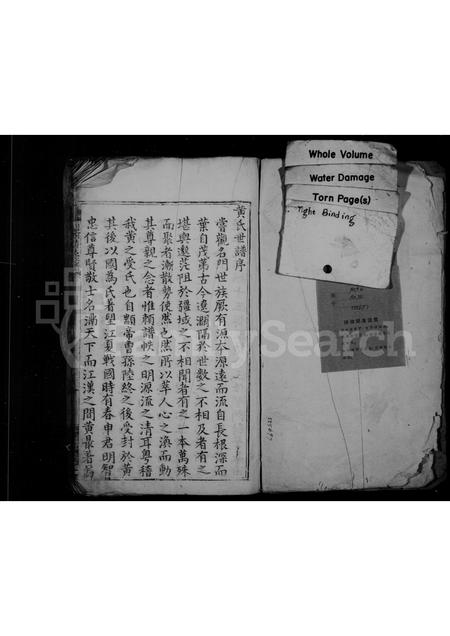 黄氏世譜序
嘗觀名門世族厥有源本源遠而流自長根深而
葉自茂第古今遠濶隔於世數之不相及者有之
堪輿遼茫阻於疆域之不相聞者有之一本萬殊
而聚者漸散勢使然也然所以萃人心之渙而動
其尊親之念者惟頼譜帙之明源流之清耳粤稽
我黄之受氏也自顓帝曽孫陸終之後受封於黄
其後以國為氏者望江夏戰國時有春申君明智
忠信尊賢敬士名滿天下而江漢之間黄最著焉
Whole Volume
Water Damage
Torn Page(s)
Tight Binding
FamilySearch